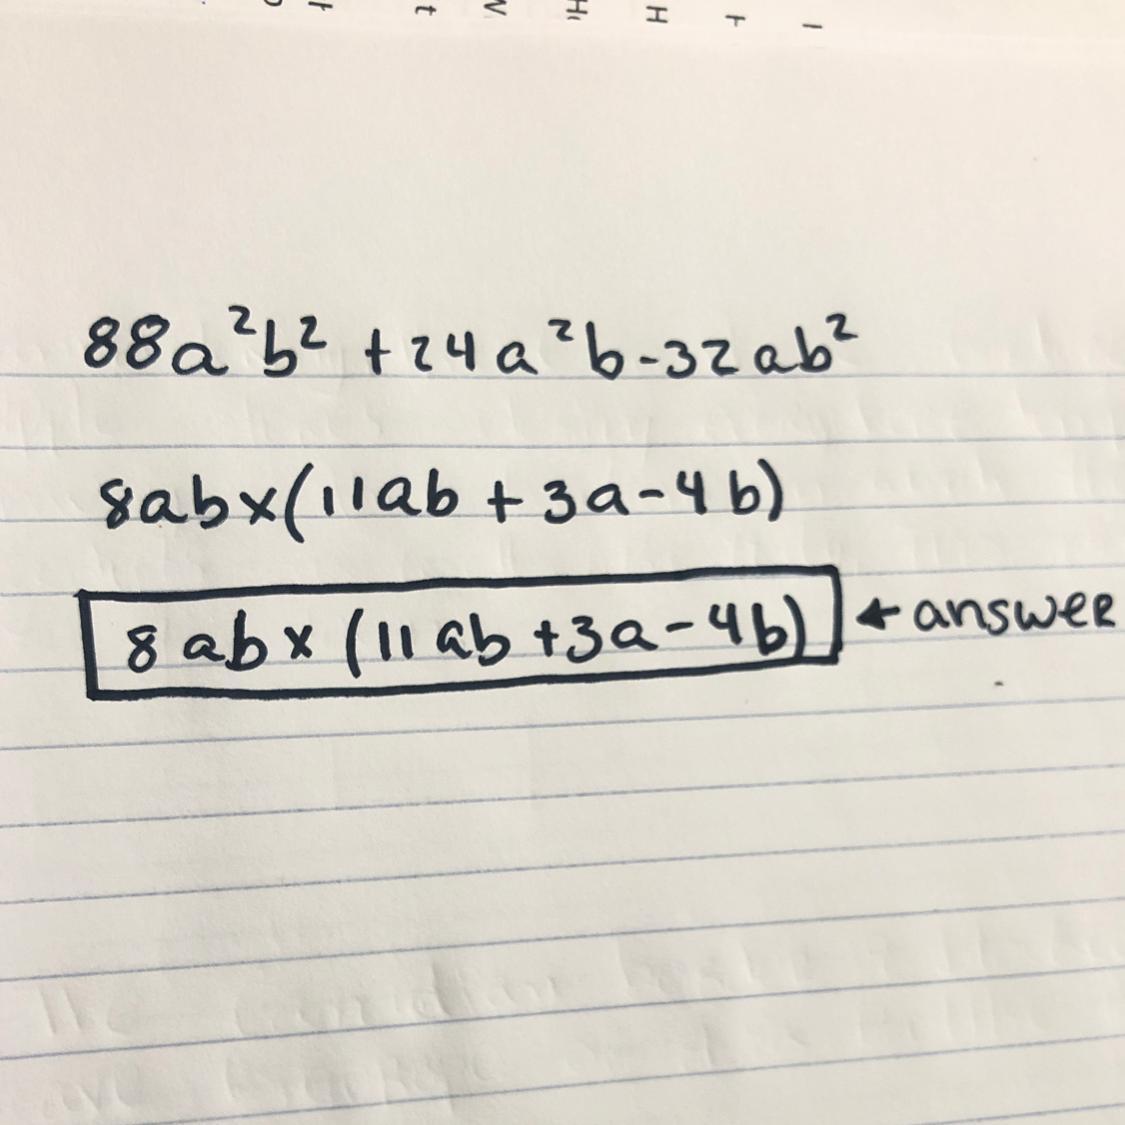 88a²b² + 24a²b - 32ab²
8abx(11ab + 3a - 4b)
8abx(11ab + 3a - 4b) ← answer